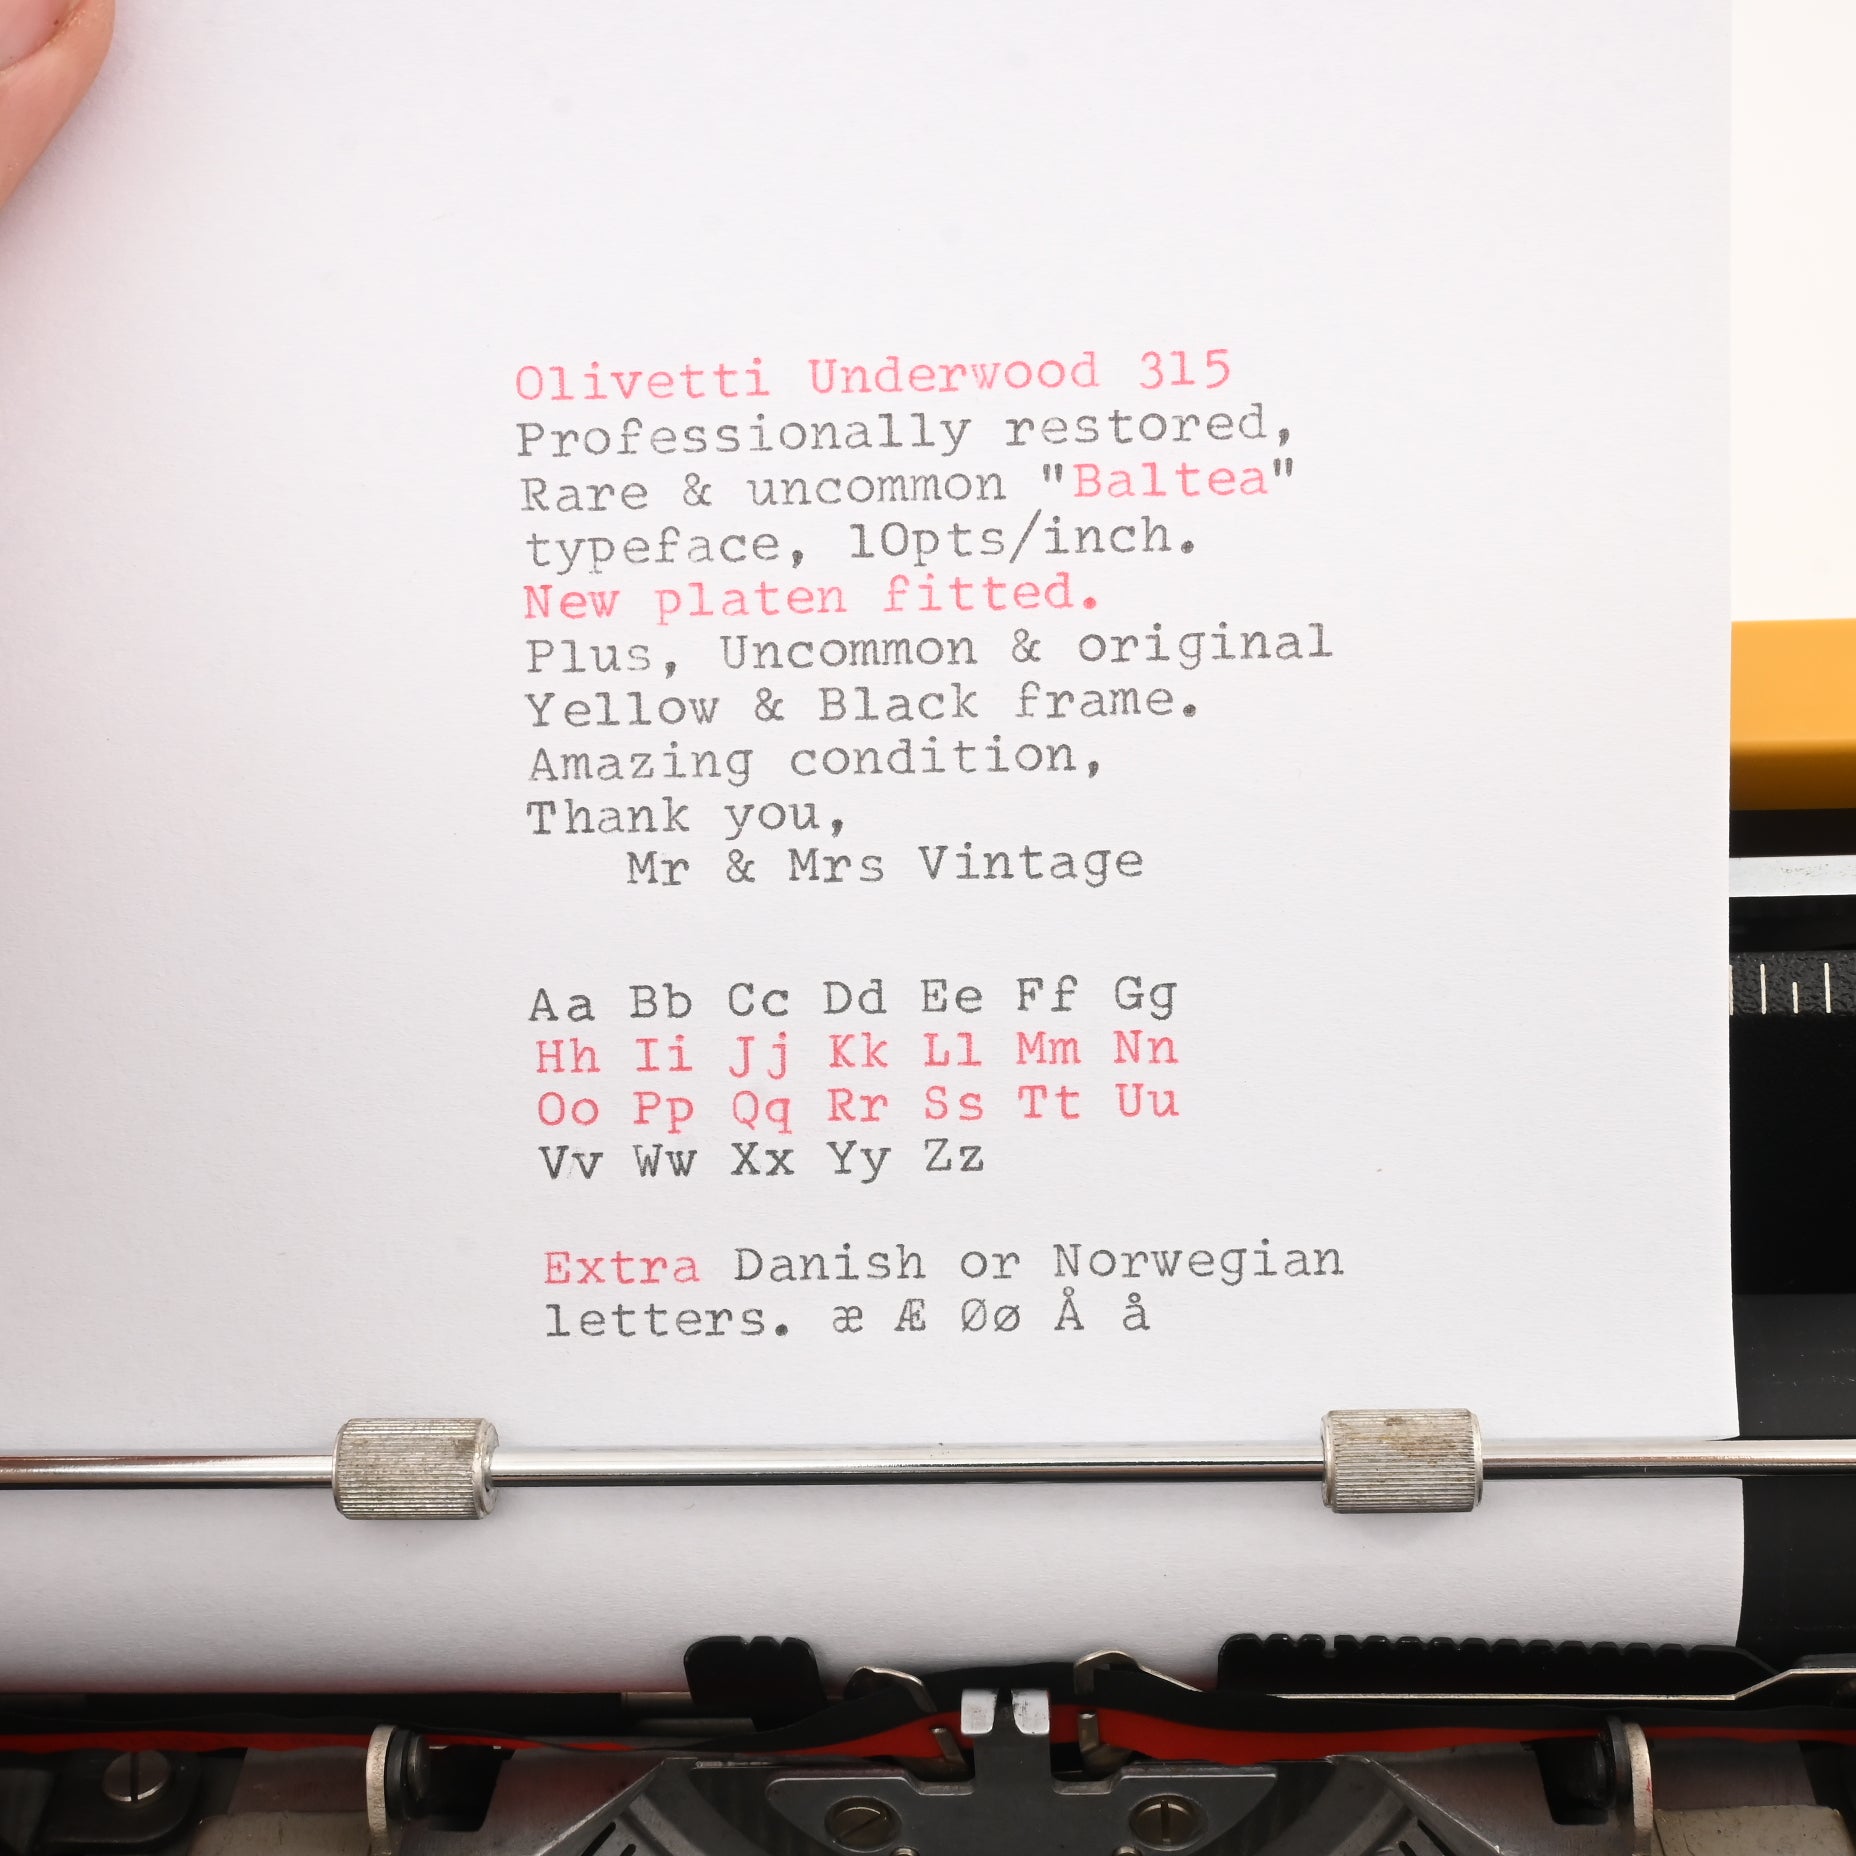 Olivetti Underwood 315
Professionally restored,
Rare & uncommon "Baltea"
typeface, 10pts/inch.
New platen fitted.
Plus, Uncommon & original
Yellow & Black frame.
Amazing condition,
Thank you,
Mr & Mrs Vintage
Aa Bb Cc Dd Ee Ff Gg
Hh Ii Jj Kk Ll Mm Nn
Oo Pp Qq Rr Ss Tt Uu
Vv Ww Xx Yy Zz
Extra Danish or Norwegian
letters. æ Æ Øø Å å